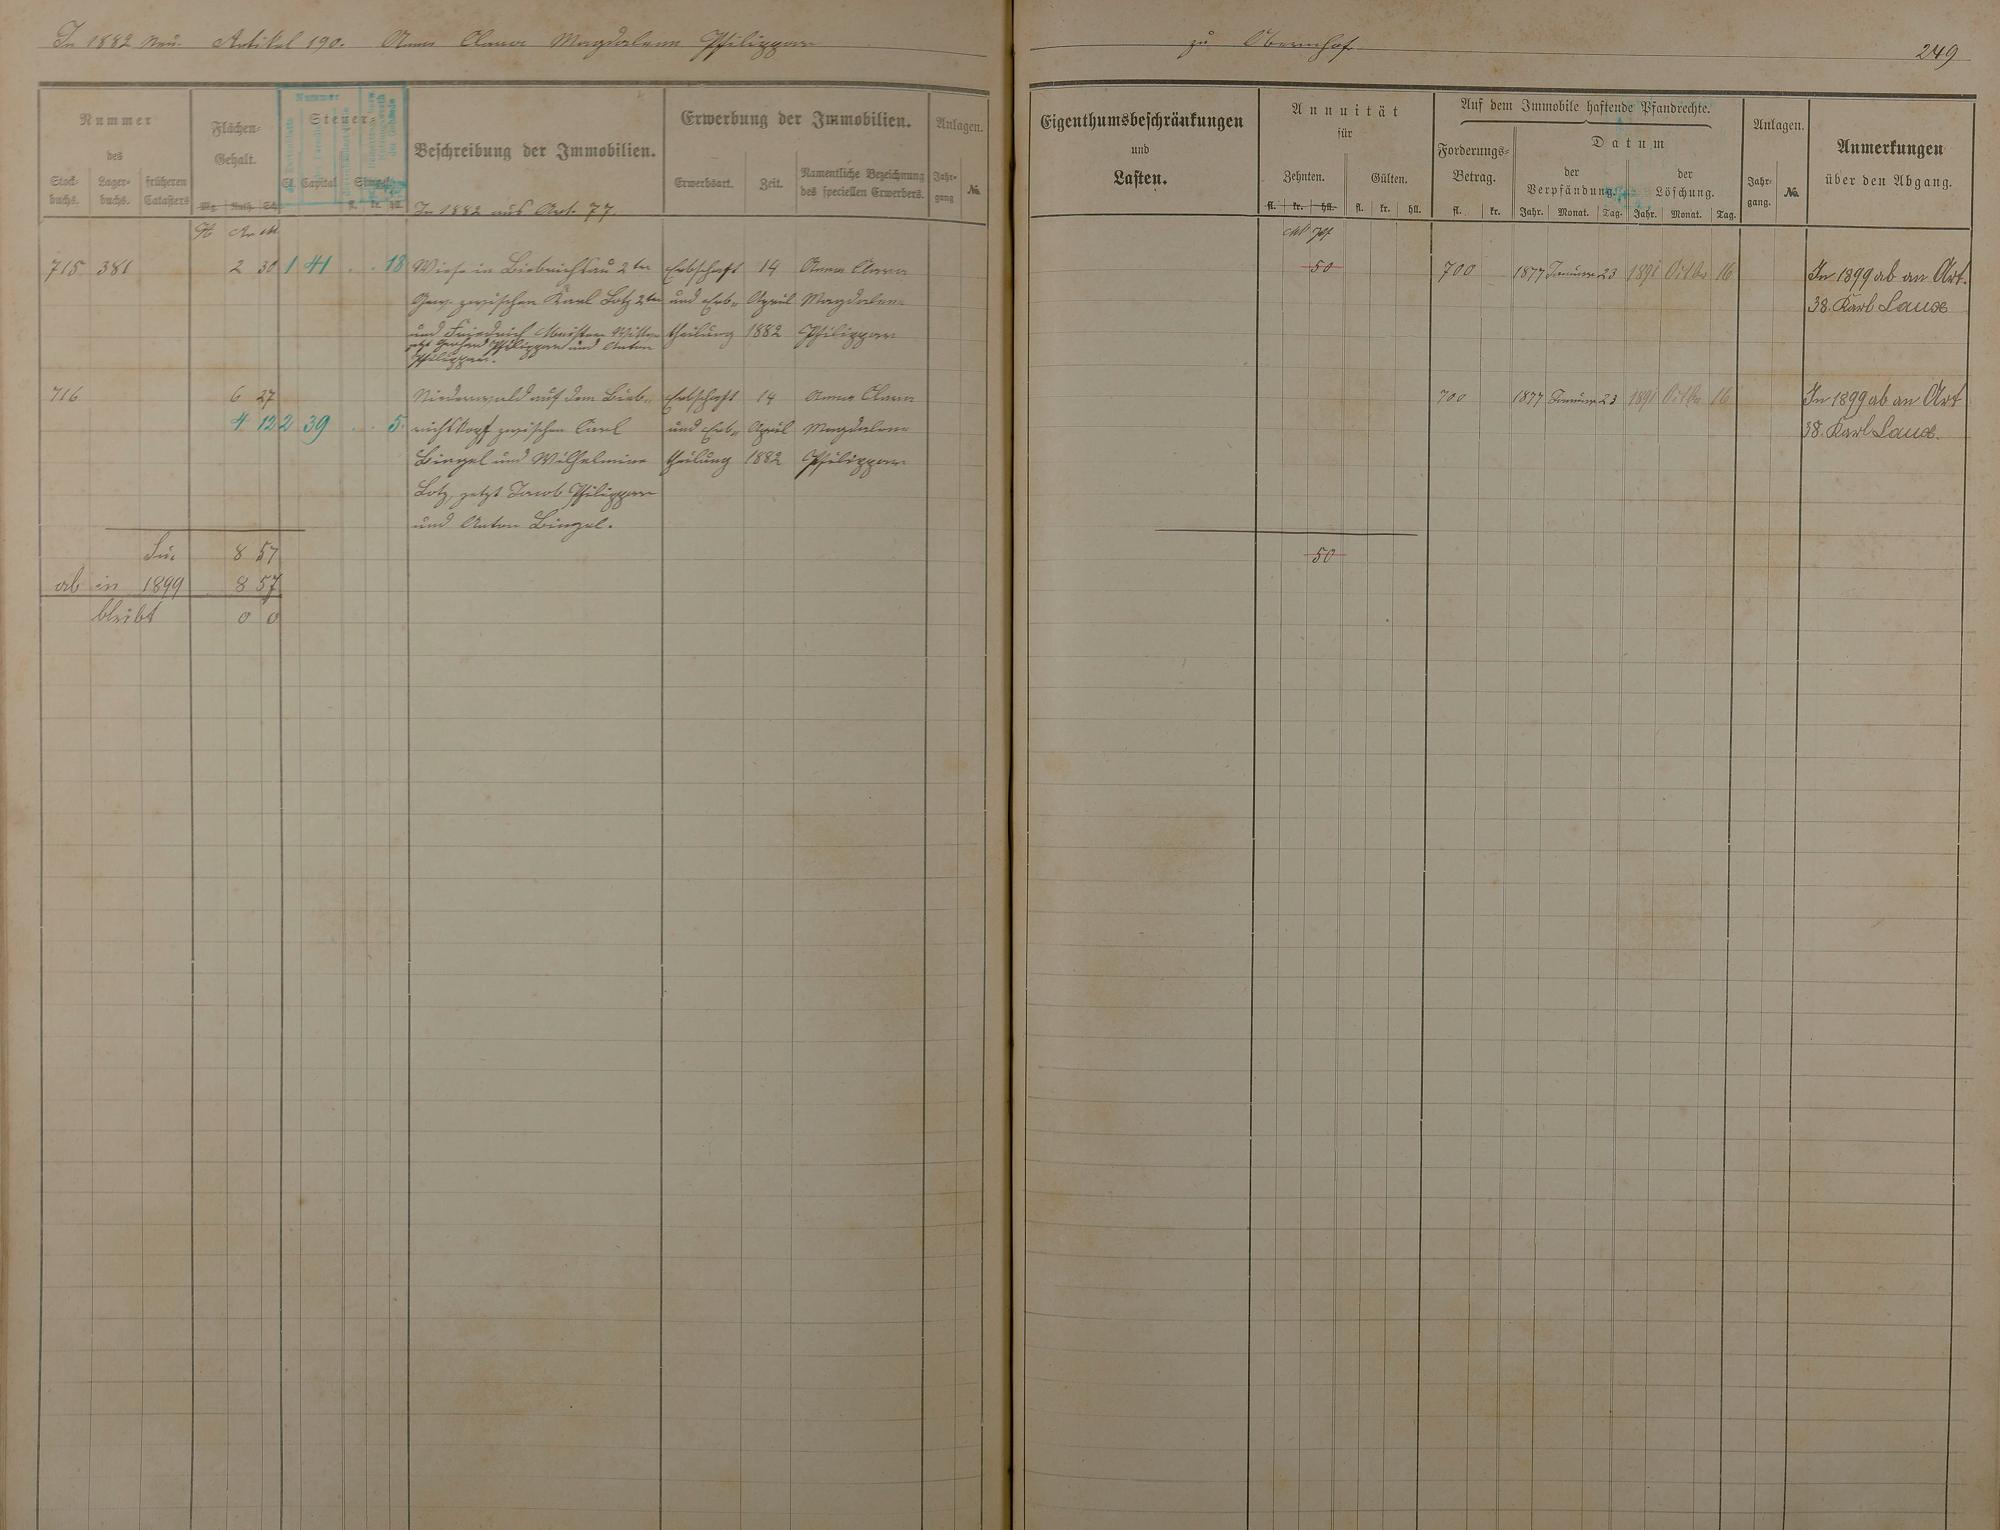 In 1882 neu. Artikel 190. Anna Clara Magdalena Philippar zu Obernhof 249
Nummer
des
Stock-
buchs.
Lager-
buchs.
früheren
Catasters
Flächen-
Gehalt.
Mg. Ruth. Sch.
Nummer
Steuer
Cl. Capital Simpel
fl. kr. hll.
Beschreibung der Immobilien.
In 1882 aus Art. 77
Erwerbung der Immobilien.
Erwerbsart. Zeit.
Namentliche Bezeichnung
des speciellen Erwerbers.
Anlagen.
Jahr-
gang
No.
Eigenthumsbeschränkungen
und
Lasten.
Annuität
für
Zehnten. Gülten.
fl. kr. hll. fl. kr. hll.
Auf dem Immobile haftende Pfandrechte.
Forderungs-
Betrag.
fl. kr.
Datum
der
Verpfändung.
der
Löschung.
Jahr. Monat. Tag. Jahr. Monat. Tag.
Anlagen.
Jahr-
gang.
No.
Anmerkungen
über den Abgang.
H Ar M
M Pf
715 381 2 30 1 41 . . 18 Wiese in Biebrichsau 2ter Erbschaft 14 Anna Clara 50 700 1877 Januar 23 1891 16 In 1899 ab an Art.
Gew. zwischen Karl Lotz 2ter und Erb- April Magdalena 38. Karl Laux
und Friedrich theilung 1882 Philippar
jetzt Gerhard Philippar und Anton
Philippar.
716 6 27 Niederwald auf dem Bieb- Erbschaft 14 Anna Clara 700 1877 Januar 23 1891 16 In 1899 ab an Art
4 12 2 39 . . 5 richskopf zwischen Carl und Erb- April Magdalena 38. Karl Laux.
Bingel und Wilhelmine theilung 1882 Philippar
Lotz, jetzt Jacob Philippar
und Anton Bingel.
Su. 8 57 50
ab in 1899 8 57
bleibt 0 0